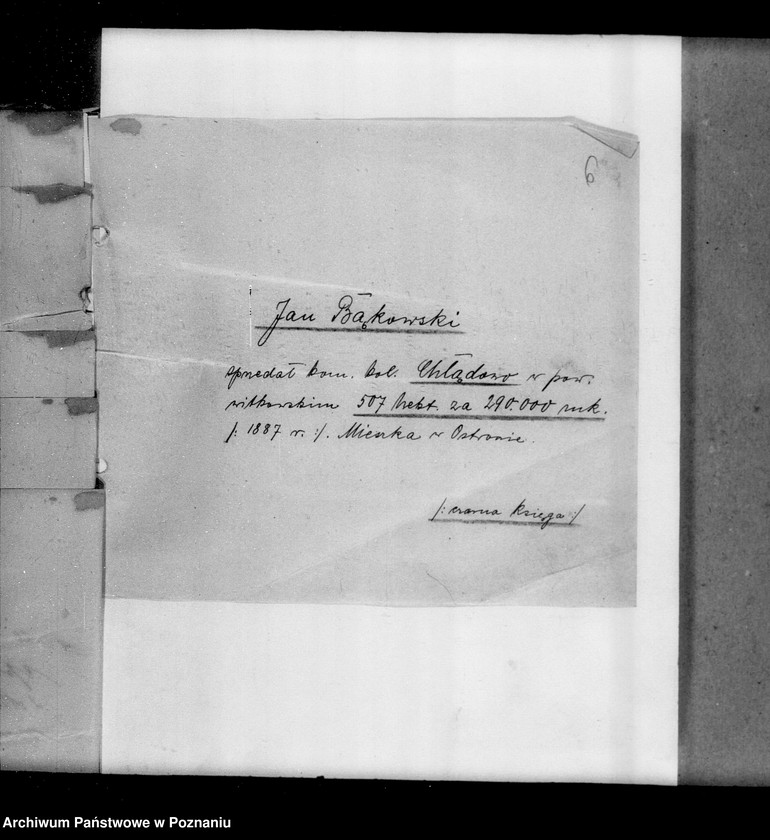 6
Jan Bąkowski
sprzedał kom. kol. Chłądowo w pow.
witkowskim 507 hekt. za 290.000 mk.
/: 1887 r. :/. Mieszka w Ostrowie.
/: czarna księga :/
Archiwum Państwowe w Poznaniu